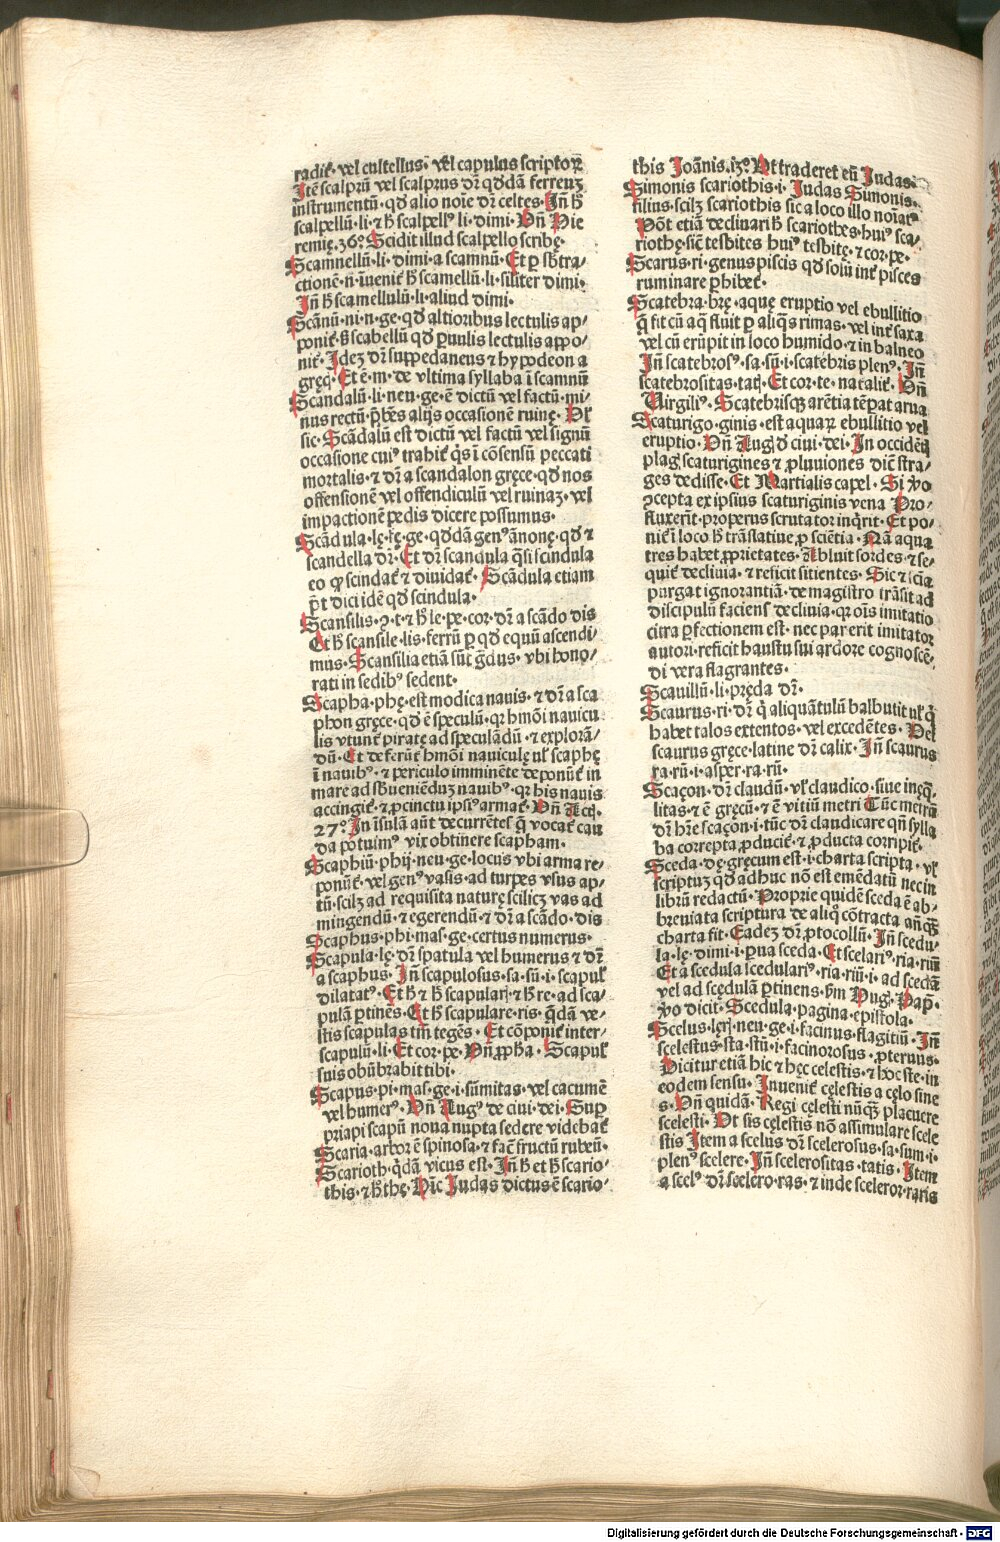 radit᷒· vel cultellus· vel̄ capulus scriptoꝝ
Itē scalprū vel scalprus dr̄ qd̓dā ferreuꝫ
instrumentū· qd̓ alio noīe dr̄ celtes· Iñ h̄
scalpellū·li·⁊ h̄ scalpell᷒ li·dimi· Vn̄ Hie
remię·36°· Scidit illud scalpello scribę·
Scamnellū·li·dimi·a scamnū· Et ꝑ sb̄tra-
ctionē·n·īuenit᷒ h̄ scamellū·li·sil̓iter dimi·
Iñ h̄ scamellulū·li·aliud dimi·
Scānū·ni·n·ge·qd̓ altioribus lectulis ap-
ponit᷒· s̄ scabellū qd̓ ꝑuulis lectulis appo-
nit᷒· Ideꝫ dr̄ suppedaneus ⁊ hypodeon a
gręcꝭ· Et ē·m·de vltima syllaba ī scamnū
Scandalū·li·neu·ge·ē dictū vel factū·mi-
nus rectū·p̄bēs alijs occasionē ruinę· Vl̓
sic· Scādalū est dictū vel factū vel signū
occasione cui᷒ trahit᷒ qs̄ ī cōsensū peccati
mortalis·⁊ dr̄ a scandalon gręce·qd̓ nos
offensionē vel offendiculū vel ruinaꝫ·vel
impactionē pedis dicere possumus·
Scādula·lę·fę·ge·qd̓dā gen᷒ ānonę·qd̓ ⁊
scandella dr̄· Et dr̄ scandula q̄si scindula
eo ꝙ scindat᷒ ⁊ diuidat᷒· Scādula etiam
p̄t dici idē qd̓ scindula·
Scansilis·ꝯ·t·⁊ h̄ le·pe·cor·dr̄ a scādo dis
Et h̄ scansile·lis·ferrū ꝑ qd̓ equū ascendi-
mus· Scansilia etiā sūt ḡdus·vbi hono-
rati in sedib᷒ sedent·
Scapha·phę·est modica nauis·⁊ dr̄ a sca
phon gręce·qd̓ ē speculū·qꝛ hmōi nauicu
lis vtunt᷒ piratę ad speculādū·⁊ explorā-
dū· Et deferūt᷒ hmōi nauiculę vl̓ scaphę
ī nauib᷒·⁊ periculo imminēte deponūt᷒ in
mare ad sb̄ueniēduꝫ nauib᷒·qꝛ his nauis
accingit᷒·⁊ ꝓcinctu ips᷒ armat᷒· Vn̄ Actꝭ·
27°· In īsulā aūt decurrētes q̄ vocat᷒ cau
da potuim᷒ vix obtinere scapham·
Scaphiū·phij·neu·ge·locus vbi arma re-
ponūt᷒·vel gen᷒ vasis·ad turpes vsus ap-
tū·scilꝫ ad requisita naturę scilicꝫ vas ad
mingendū·⁊ egerendū·⁊ dr̄ a scādo·dis
Scaphus·phi·mas·ge·certus numerus·
Scapula·lę·dr̄ spatula vel humerus ⁊ dr̄
a scaphus· Iñ scapulosus·sa·sū·i·scapul᷒
dilatat᷒· Et h̄ ⁊ h̄ scapularꝭ·⁊ h̄ re·ad sca-
pulā ꝑtinēs· Et h̄ scapulare·ris·q̄dā ve-
stis scapulas tm̄ tegēs· Et cōponit᷒ inter-
scapulū·li· Et cor·pe· Vn̄ ꝓph̄a· Scapul᷒
suis obūbrabit tibi·
Scapus·pi·mas·ge·i·sūmitas·vel cacumē
vel humer᷒· Vn̄ Aug᷒ de ciui·dei· Suꝑ
priapi scapū noua nupta sedere videbat᷒
Scaria·arbor ē spinosa·⁊ fac̄ fructū rubeū·
Scarioth·q̄dā vicus est· Iñ h̄ et h̄ scario-
this·⁊ h̄ thę· Hic Judas dictus ē scario-
this Joānis·13°· Vt traderet eū Judas·
Simonis scariothis·i· Judas Simonis·
filius·scilꝫ scariothis sic a loco illo noīat᷒
Pōt etiā declinari h̄ scariothes·hui᷒ sca-
riothę·sic̄ tesbites hui᷒ tesbitę·⁊ cor·pe·
Scarus·ri·genus piscis qd̓ solū int᷒ pisces
ruminare ꝑhibet᷒·
Scatebra·brę·aquę eruptio vel ebullitio
q̄ fit cū aq̄ fluit ꝑ aliq̄s rimas·vel int᷒ saxa
vel cū erūpit in loco humido·⁊ in balneo
Iñ scatebros᷒·sa·sū·i·scatebris plen᷒· Iñ
scatebrositas·tatꝭ· Et cor·te·naturalit᷒· Vn̄
Virgili᷒· Scatebrisqꝫ arētia tēpat arua
Scaturigo·ginis·est aquaꝝ ebullitio vel
eruptio· Vn̄ Aug᷒ d̓ ciui·dei· In occidētꝭ
plagꝭ scaturigines ⁊ ꝓluuiones dict᷒ stra-
ges dedisse· Et Martialis capel· Si ꝟo
ꝯcepta ex ipsius scaturiginis vena Pro-
fluxerit·properus scrutator inq̄rit· Et po-
nit᷒ ī loco h̄ trāslatiue·ꝓ sciētia· Nā aqua
tres habet ꝓprietates· Abluit sordes·⁊ se-
quit᷒ decliuia·⁊ reficit sitientes· Sic ⁊ scīa
purgat ignorantiā·de magistro trāsit ad
discipulū faciens decliuia·qꝛ oīs imitatio
citra ꝑfectionem est·nec par erit imitator
autori·reficit haustu sui ardore cognoscē-
di vera flagrantes·
Scauillū·li·pręda dr̄·
Scaurus·ri·dr̄ q̄ aliquātulū balbutit vl̓ q̄
habet talos extentos·vel excedētes· Vel
scaurus gręce·latine dr̄ calix· Iñ scaurus
ra·rū·i·asper·ra·rū·
Scaçon·dr̄ claudū·vl̓ claudico·siue ineq̄-
litas·⁊ ē gręcū·⁊ ē vitiū metri Tūc metrū
dr̄ hr̄e scaçon·i·tūc dr̄ claudicare qn̄ sylla
ba correpta ꝓducit᷒·⁊ ꝓducta corripit᷒·
Sceda·dę·gręcum est·i·charta scripta·vl̓
scriptuꝫ qd̓ adhuc nō est emēdatū nec in
librū redactū· Proprie quidē sceda ē ab-
breuiata scriptura de aliq̄ cōtracta anq̄ꝫ
charta fit· Eadeꝫ dr̄ ꝓtocollū· Iñ scedu-
la·lę·dimi·i·ꝑua sceda· Et scelari᷒·ria·riū
Et a scedula scedulari᷒·ria·riū·i·ad scedā
vel ad scędulā ꝑtinens·ſm Hug· Pap·
ꝟo dicit· Scedula·pagina·epistola·
Scelus·lerꝭ·neu·ge·i·facinus·flagitiū· Iñ
scelestus·sta·stū·i·facinorosus·ꝓteruus·
Dicitur etiā hic ⁊ hęc celestis·⁊ hoc ste·in
eodem sensu· Inuenit᷒ cęlestis a cęlo sine
s· Vn̄ quidā· Regi cęlesti nūq̄ꝫ placuere
scelesti· Vt sis cęlestis nō assimulare scele
stis Item a scelus dr̄ scelerosus·sa·sum·i·
plen᷒ scelere· Iñ scelerositas·tatis· Item
a scel᷒ dr̄ scelero·ras·⁊ inde sceleror·raris
Digitalisierung gefördert durch die Deutsche Forschungsgemeinschaft · DFG